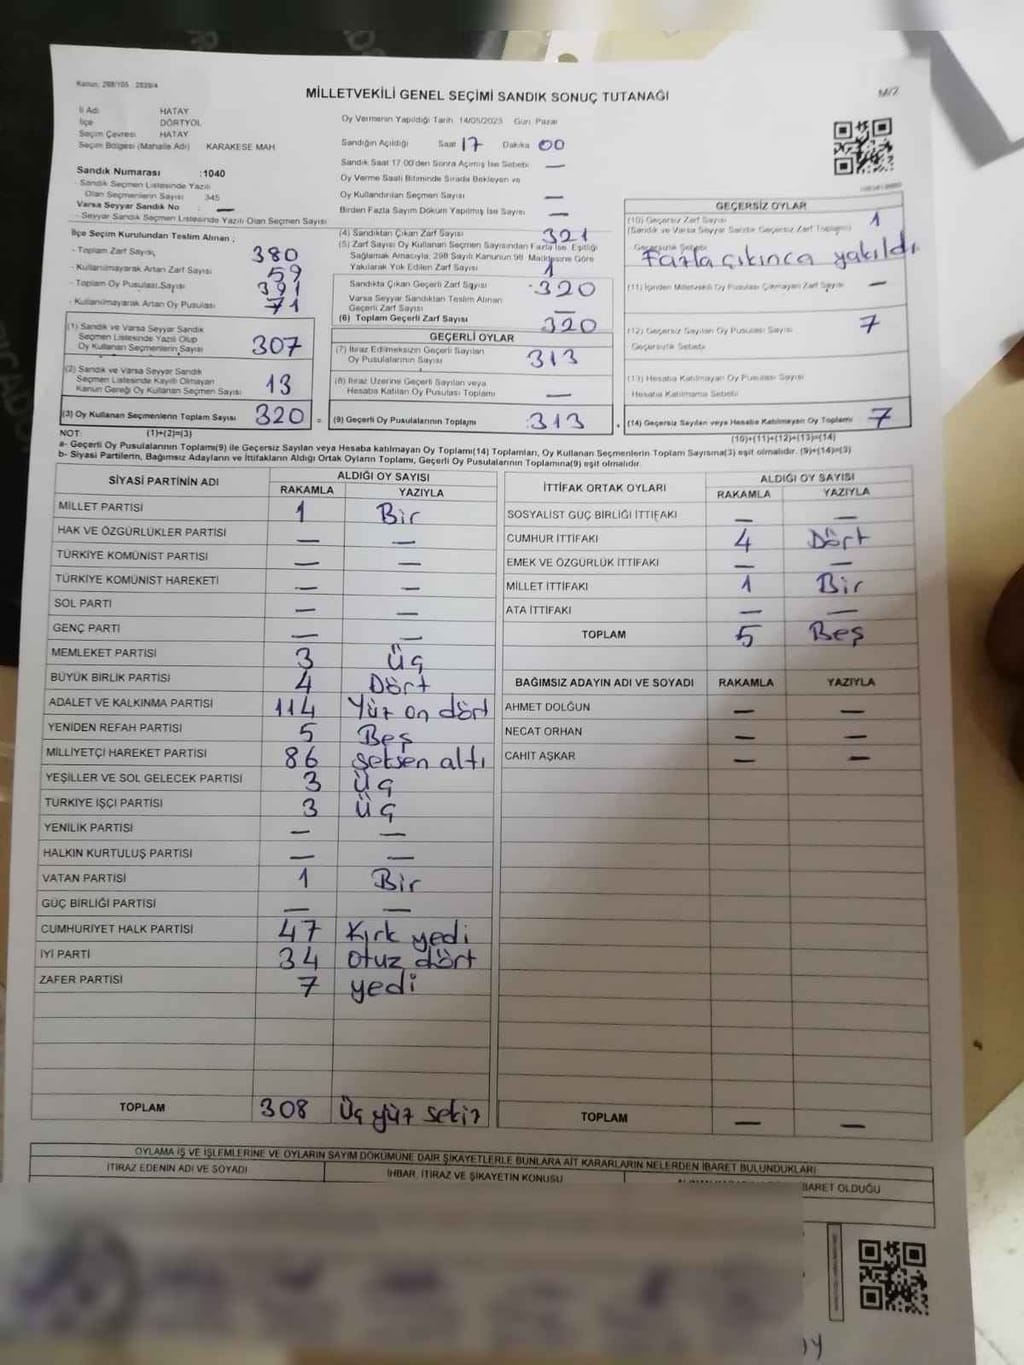 Kanun: 298/105 2839/4
MİLLETVEKİLİ GENEL SEÇİMİ SANDIK SONUÇ TUTANAĞI
M/2
İl Adı HATAY
İlçe DÖRTYOL
Seçim Çevresi HATAY
Seçim Bölgesi (Mahalle Adı) KARAKESE MAH
Oy Vermenin Yapıldığı Tarih 14/05/2023 Gün: Pazar
Sandığın Açıldığı Saat 17 Dakika 00
Sandık Saat 17.00'den Sonra Açımış İse Sebebi —
Oy Verme Saati Bitiminde Sırada Bekleyen ve
Oy Kullandırılan Seçmen Sayısı —
Birden Fazla Sayım Döküm Yapılmış İse Sayısı —
Sandık Numarası :1040
- Sandık Seçmen Listesinde Yazılı
Olan Seçmenlerin Sayısı 345
Varsa Seyyar Sandık No : —
- Seyyar Sandık Seçmen Listesinde Yazılı Olan Seçmen Sayısı
İlçe Seçim Kurulundan Teslim Alınan ;
- Toplam Zarf Sayısı, 380
- Kullanılmayarak Artan Zarf Sayısı 59
- Toplam Oy Pusulası Sayısı 391
- Kullanılmayarak Artan Oy Pusulası 71
(1) Sandık ve Varsa Seyyar Sandık
Seçmen Listesinde Yazılı Olup
Oy Kullanan Seçmenlerin Sayısı 307
(2) Sandık ve Varsa Seyyar Sandık
Seçmen Listesinde Kayıtlı Olmayan
Kanun Gereği Oy Kullanan Seçmen Sayısı 13
(3) Oy Kullanan Seçmenlerin Toplam Sayısı 320 =
(4) Sandıktan Çıkan Zarf Sayısı 321
(5) Zarf Sayısı Oy Kullanan Seçmen Sayısından Fazla İse, Eşitliği
Sağlamak Amacıyla, 298 Sayılı Kanunun 98. Maddesine Göre
Yakılarak Yok Edilen Zarf Sayısı 1
Sandıkta Çıkan Geçerli Zarf Sayısı 320
Varsa Seyyar Sandıktan Teslim Alınan
Geçerli Zarf Sayısı —
(6) Toplam Geçerli Zarf Sayısı 320
GEÇERLİ OYLAR
(7) İtiraz Edilmeksizin Geçerli Sayılan
Oy Pusulalarının Sayısı 313
(8) İtiraz Üzerine Geçerli Sayılan veya
Hesaba Katılan Oy Pusulası Toplamı —
(9) Geçerli Oy Pusulalarının Toplamı 313
GEÇERSİZ OYLAR
(10) Geçersiz Zarf Sayısı 1
(Sandık ve Varsa Seyyar Sandık Geçersiz Zarf Toplamı)
Geçersizlik Sebebi
Fazla çıkınca yakıldı
(11) İçinden Milletvekili Oy Pusulası Çıkmayan Zarf Sayısı —
(12) Geçersiz Sayılan Oy Pusulası Sayısı 7
Geçersizlik Sebebi
(13) Hesaba Katılmayan Oy Pusulası Sayısı
Hesaba Katılmama Sebebi
(14) Geçersiz Sayılan veya Hesaba Katılmayan Oy Toplamı 7
NOT: (1)+(2)=(3)
(10)+(11)+(12)+(13)=(14)
a- Geçerli Oy Pusulalarının Toplamı(9) ile Geçersiz Sayılan veya Hesaba katılmayan Oy Toplamı(14) Toplamları, Oy Kullanan Seçmenlerin Toplam Sayısına(3) eşit olmalıdır. (9)+(14)=(3)
b- Siyasi Partilerin, Bağımsız Adayların ve İttifakların Aldığı Ortak Oyların Toplamı, Geçerli Oy Pusulalarının Toplamına(9) eşit olmalıdır.
SİYASİ PARTİNİN ADI ALDIĞI OY SAYISI
RAKAMLA YAZIYLA
MİLLET PARTİSİ 1 Bir
HAK VE ÖZGÜRLÜKLER PARTİSİ — —
TÜRKİYE KOMÜNİST PARTİSİ — —
TÜRKİYE KOMÜNİST HAREKETİ — —
SOL PARTİ — —
GENÇ PARTİ — —
MEMLEKET PARTİSİ 3 Üç
BÜYÜK BİRLİK PARTİSİ 4 Dört
ADALET VE KALKINMA PARTİSİ 114 Yüz on dört
YENİDEN REFAH PARTİSİ 5 Beş
MİLLİYETÇİ HAREKET PARTİSİ 86 seksen altı
YEŞİLLER VE SOL GELECEK PARTİSİ 3 Üç
TÜRKİYE İŞÇİ PARTİSİ 3 Üç
YENİLİK PARTİSİ — —
HALKIN KURTULUŞ PARTİSİ — —
VATAN PARTİSİ 1 Bir
GÜÇ BİRLİĞİ PARTİSİ — —
CUMHURİYET HALK PARTİSİ 47 Kırk yedi
İYİ PARTİ 34 otuz dört
ZAFER PARTİSİ 7 yedi
TOPLAM 308 Üç yüz sekiz
İTTİFAK ORTAK OYLARI ALDIĞI OY SAYISI
RAKAMLA YAZIYLA
SOSYALİST GÜÇ BİRLİĞİ İTTİFAKI — —
CUMHUR İTTİFAKI 4 Dört
EMEK VE ÖZGÜRLÜK İTTİFAKI — —
MİLLET İTTİFAKI 1 Bir
ATA İTTİFAKI — —
TOPLAM 5 Beş
BAĞIMSIZ ADAYIN ADI VE SOYADI RAKAMLA YAZIYLA
AHMET DOLĞUN — —
NECAT ORHAN — —
CAHİT AŞKAR — —
TOPLAM — —
OYLAMA İŞ VE İŞLEMLERİNE VE OYLARIN SAYIM DÖKÜMÜNE DAİR ŞİKAYETLERLE BUNLARA AİT KARARLARIN NELERDEN İBARET BULUNDUKLARI
İTİRAZ EDENİN ADI VE SOYADI İHBAR, İTİRAZ VE ŞİKAYETİN KONUSU İBARET OLDUĞU